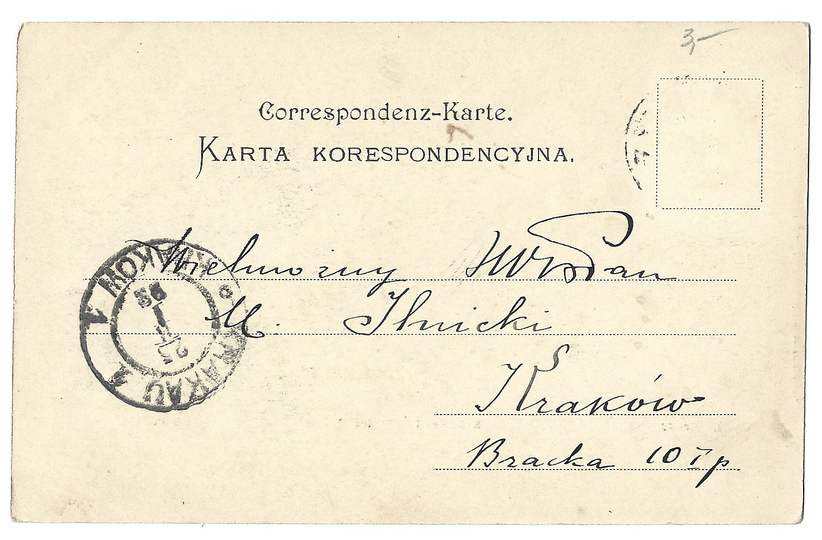 3,-
Correspondenz-Karte.
KARTA KORESPONDENCYJNA.
Wielmożny JWPan
M. Ilnicki
Kraków
Bracka 10 I p
KRAKÓW 1
KRAKAU 1
25
1
98